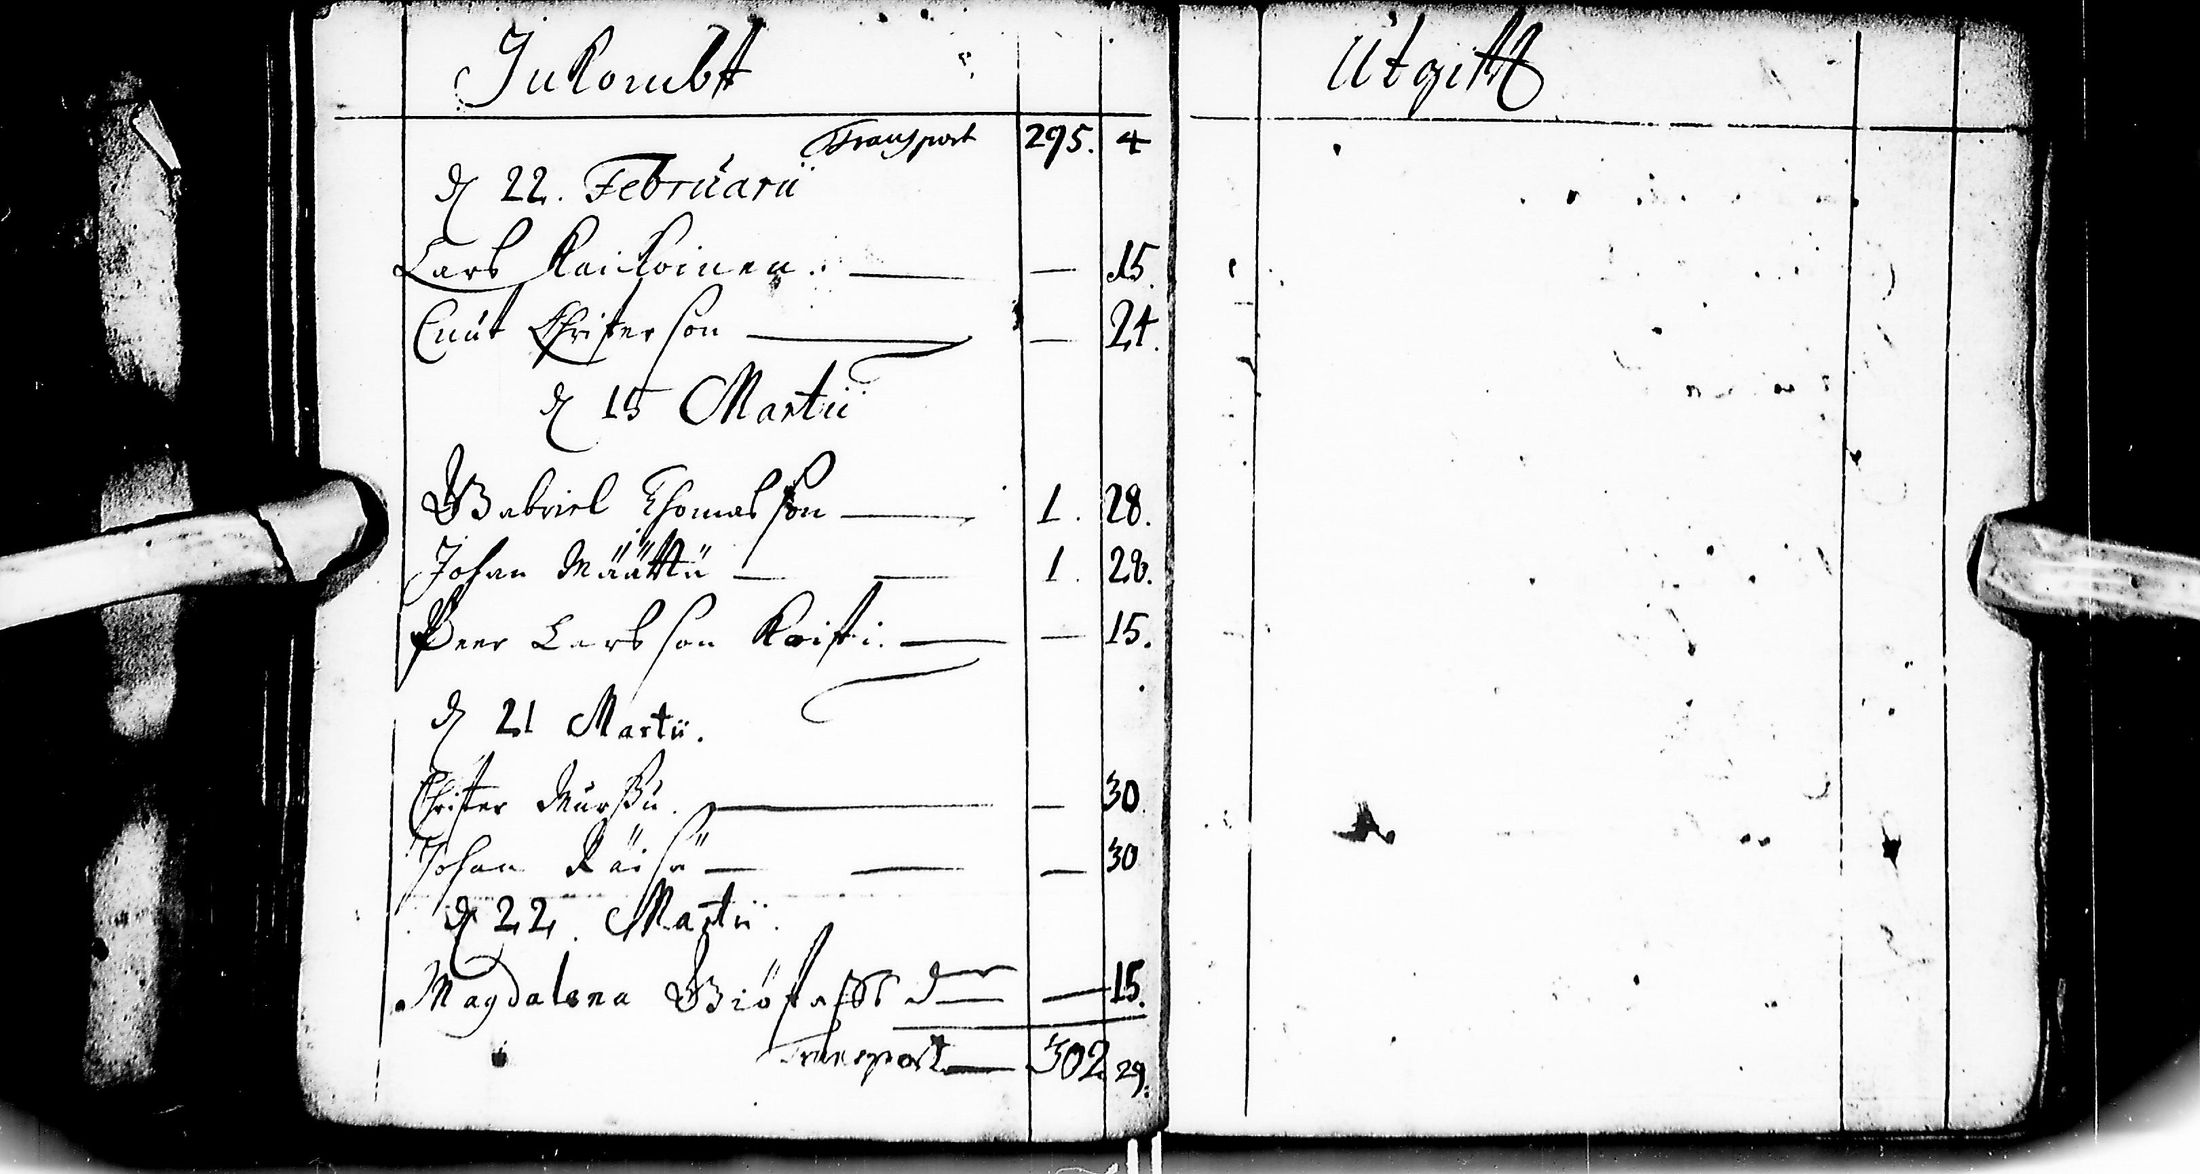 Inkombt
Transport 295. 4
d 22. Februarii
Lars Kaikoinen. — — 15.
Cnut Christerson — — 24.
d 15 Martii
Gabriel Thomasson — 1. 28.
Johan Määttä — — 1. 28.
Peer Larsson Koisti. — — 15.
d 21 Martii.
Christer Murßu. — — 30
Johan Räisä — — — 30
d 22. Martii.
Magdalena dr — — 15.
Transport — 302. 29.
Utgift